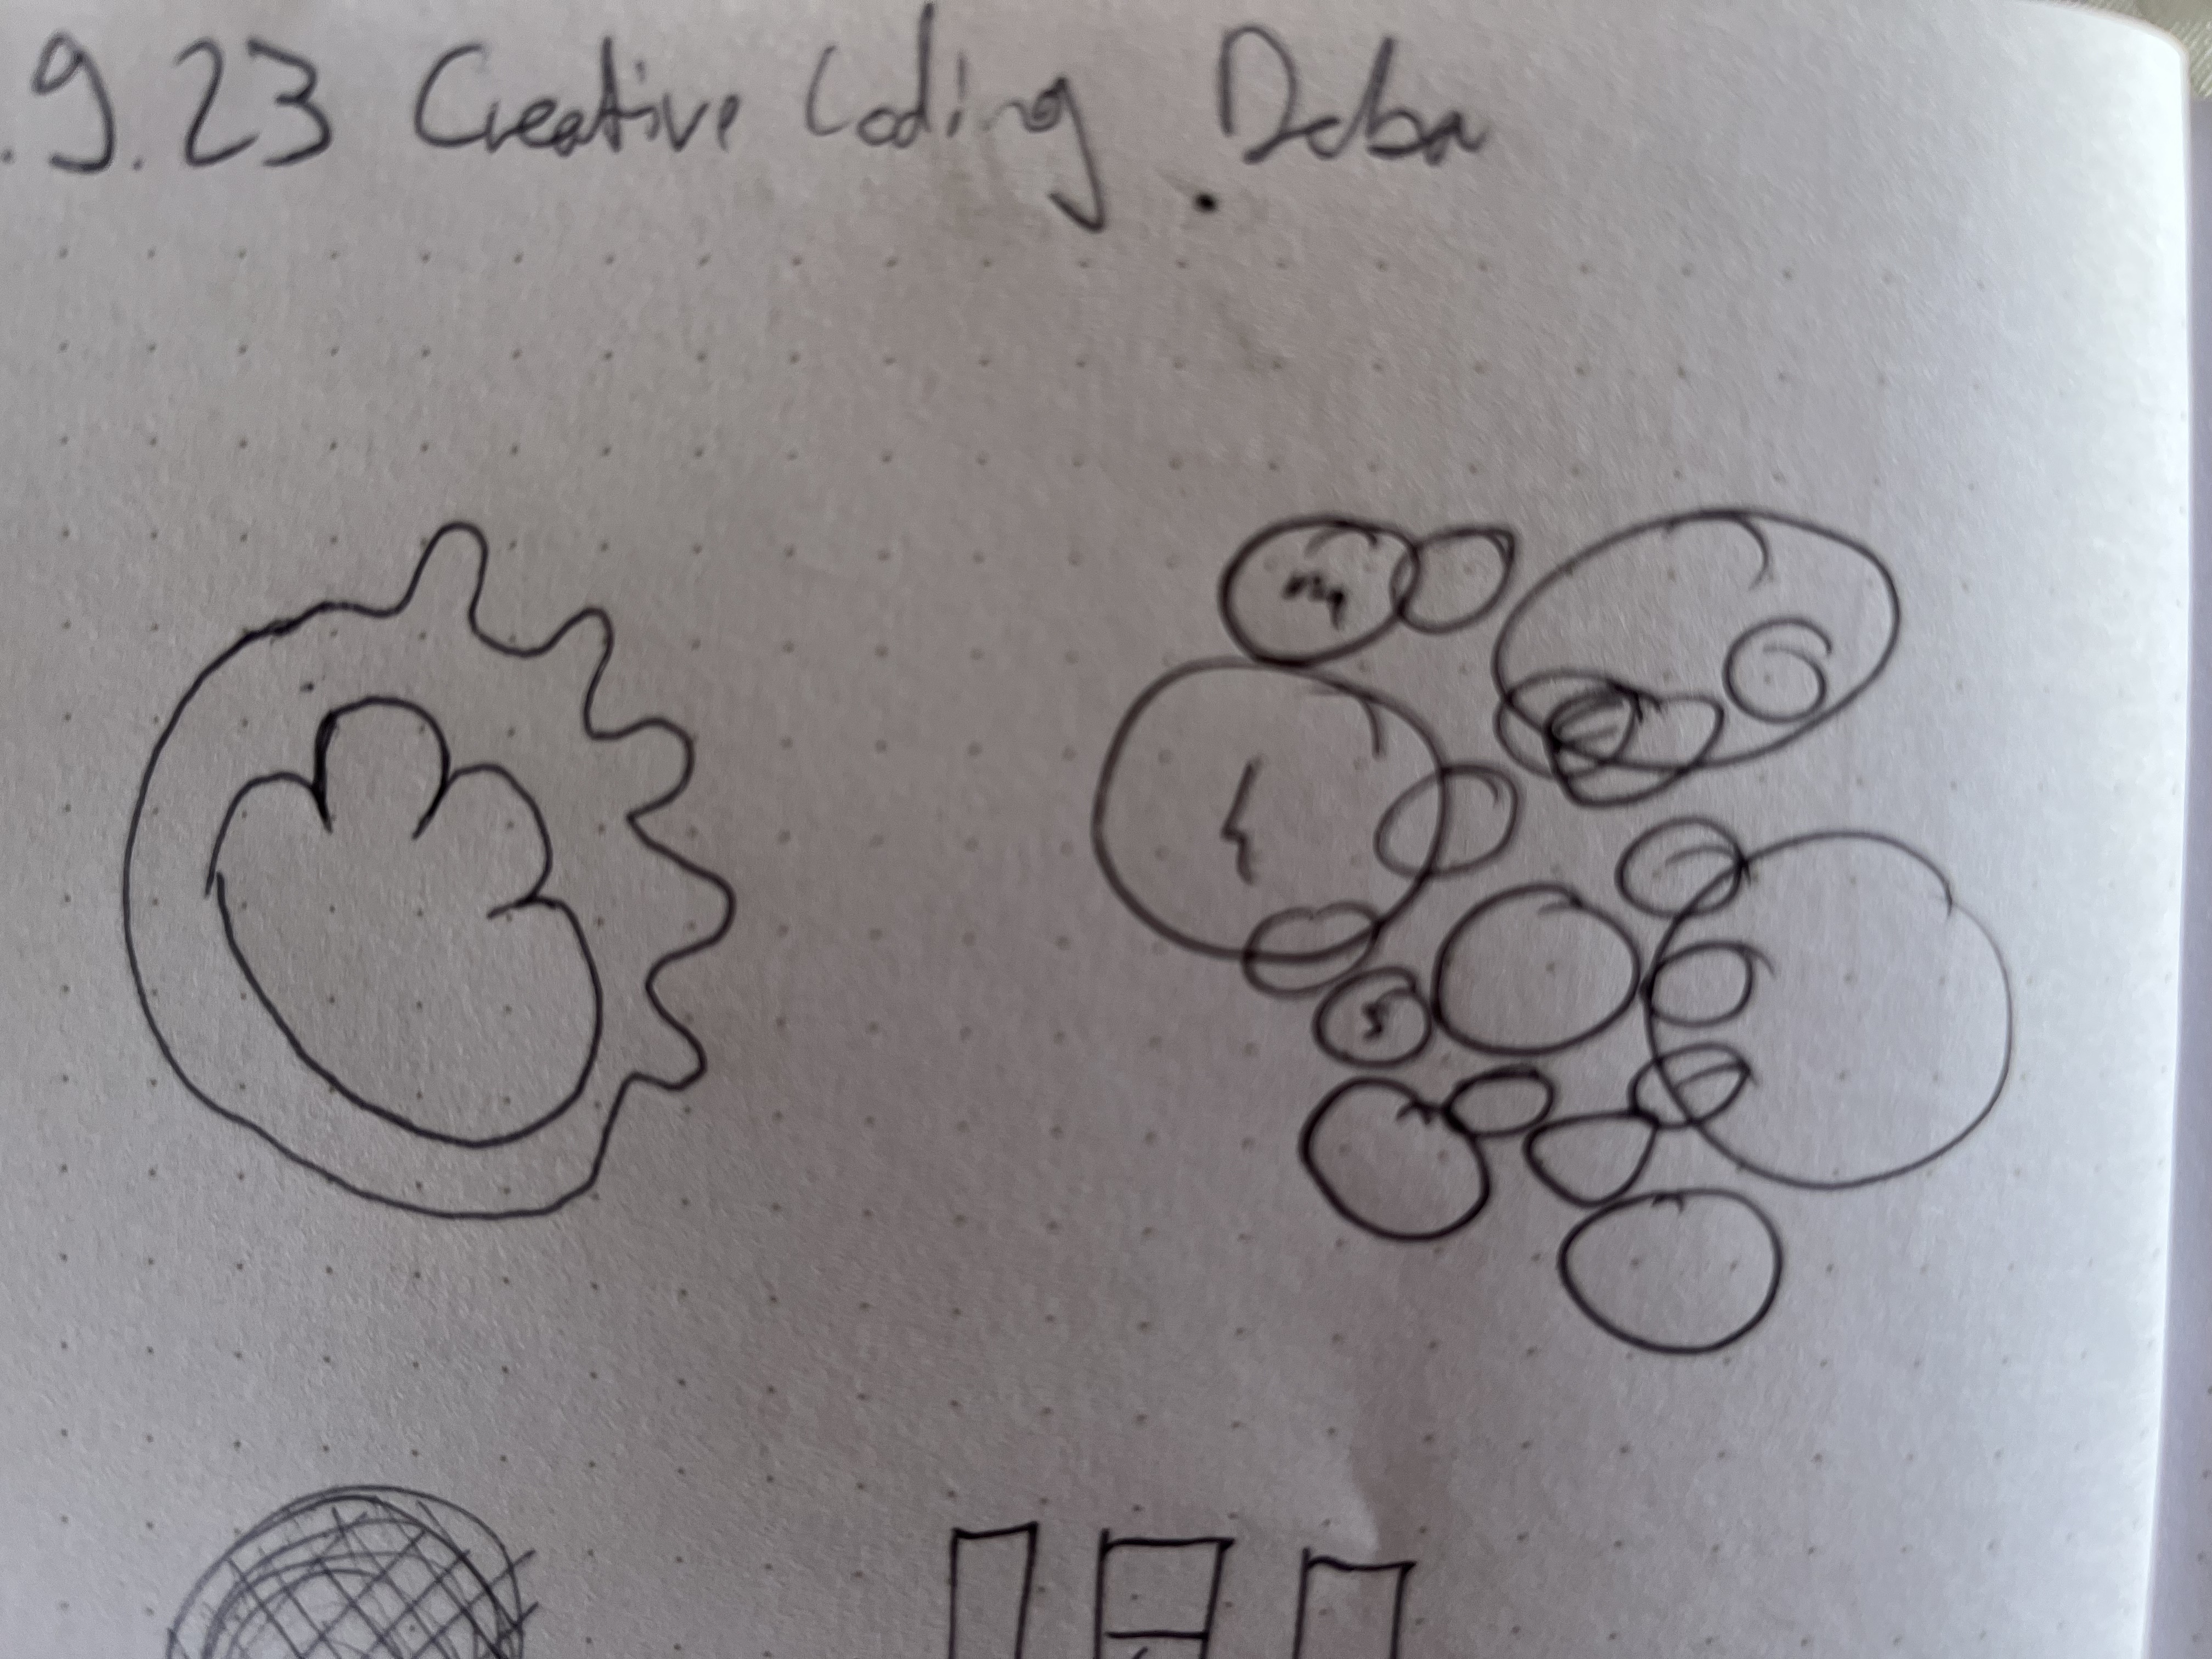 .9.23 Creative Coding